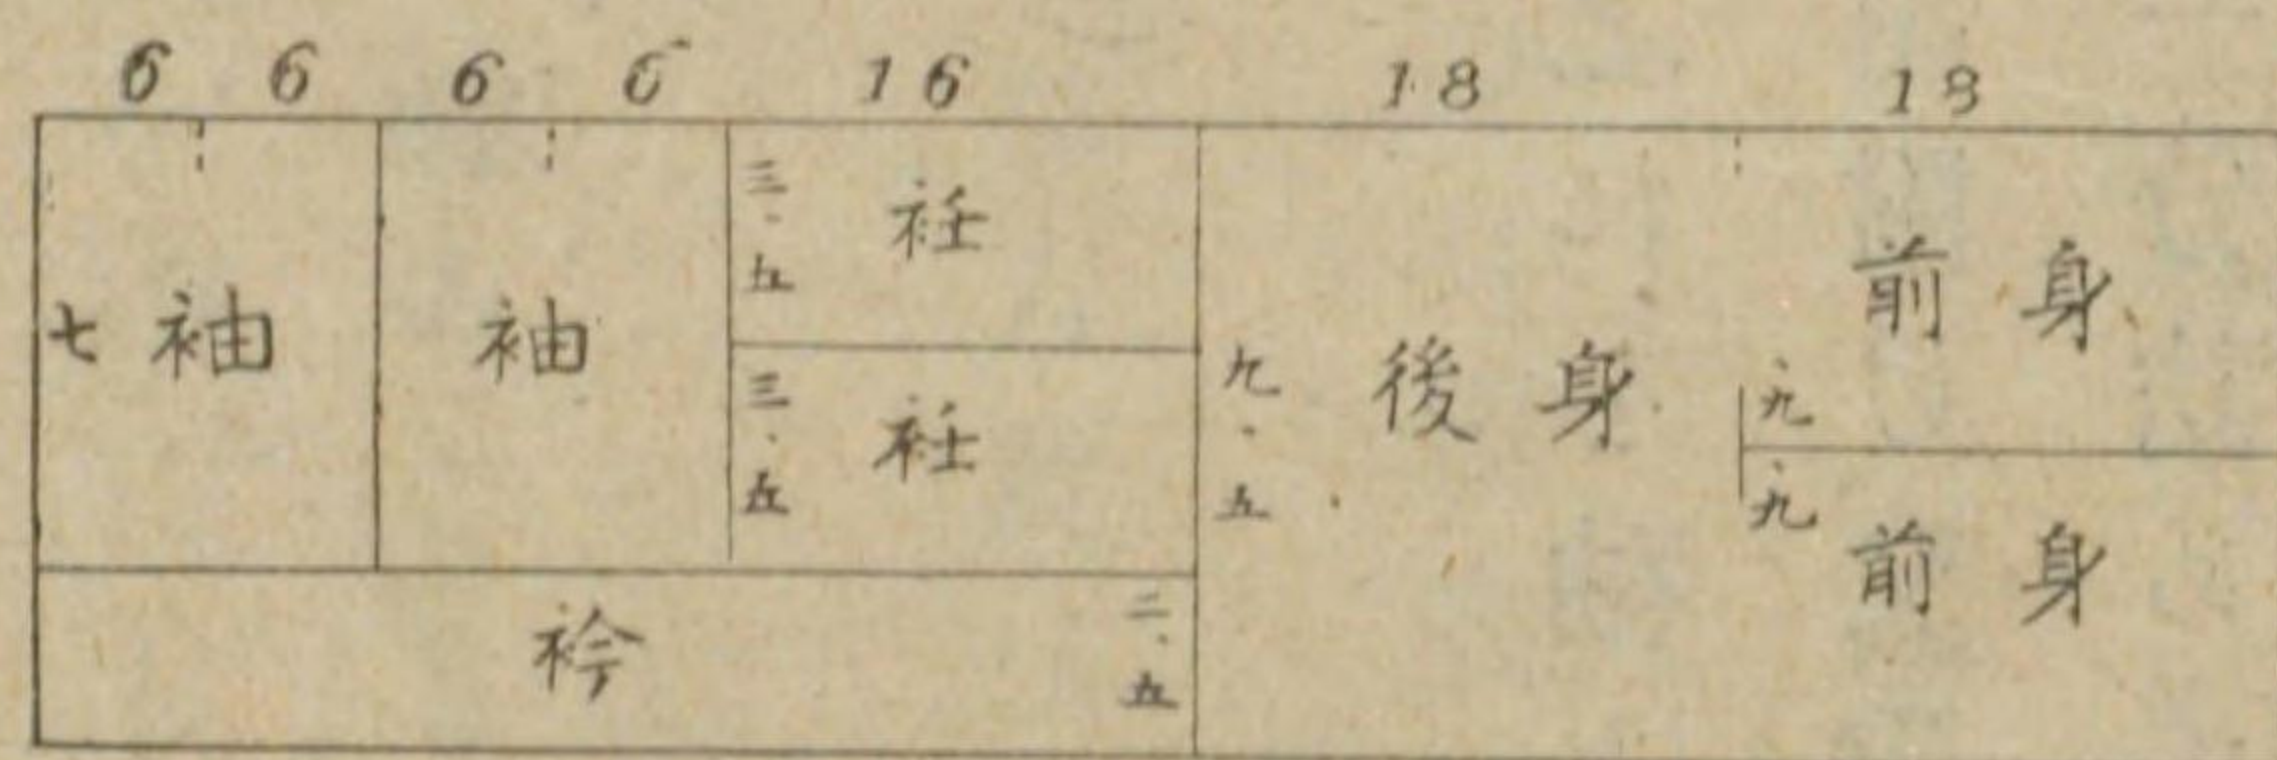 6 6 6 6 16 18 18
七 袖
袖
三.五 衽
三.五 衽
衿 二.五
九.五 後身
前身
九
九
前身